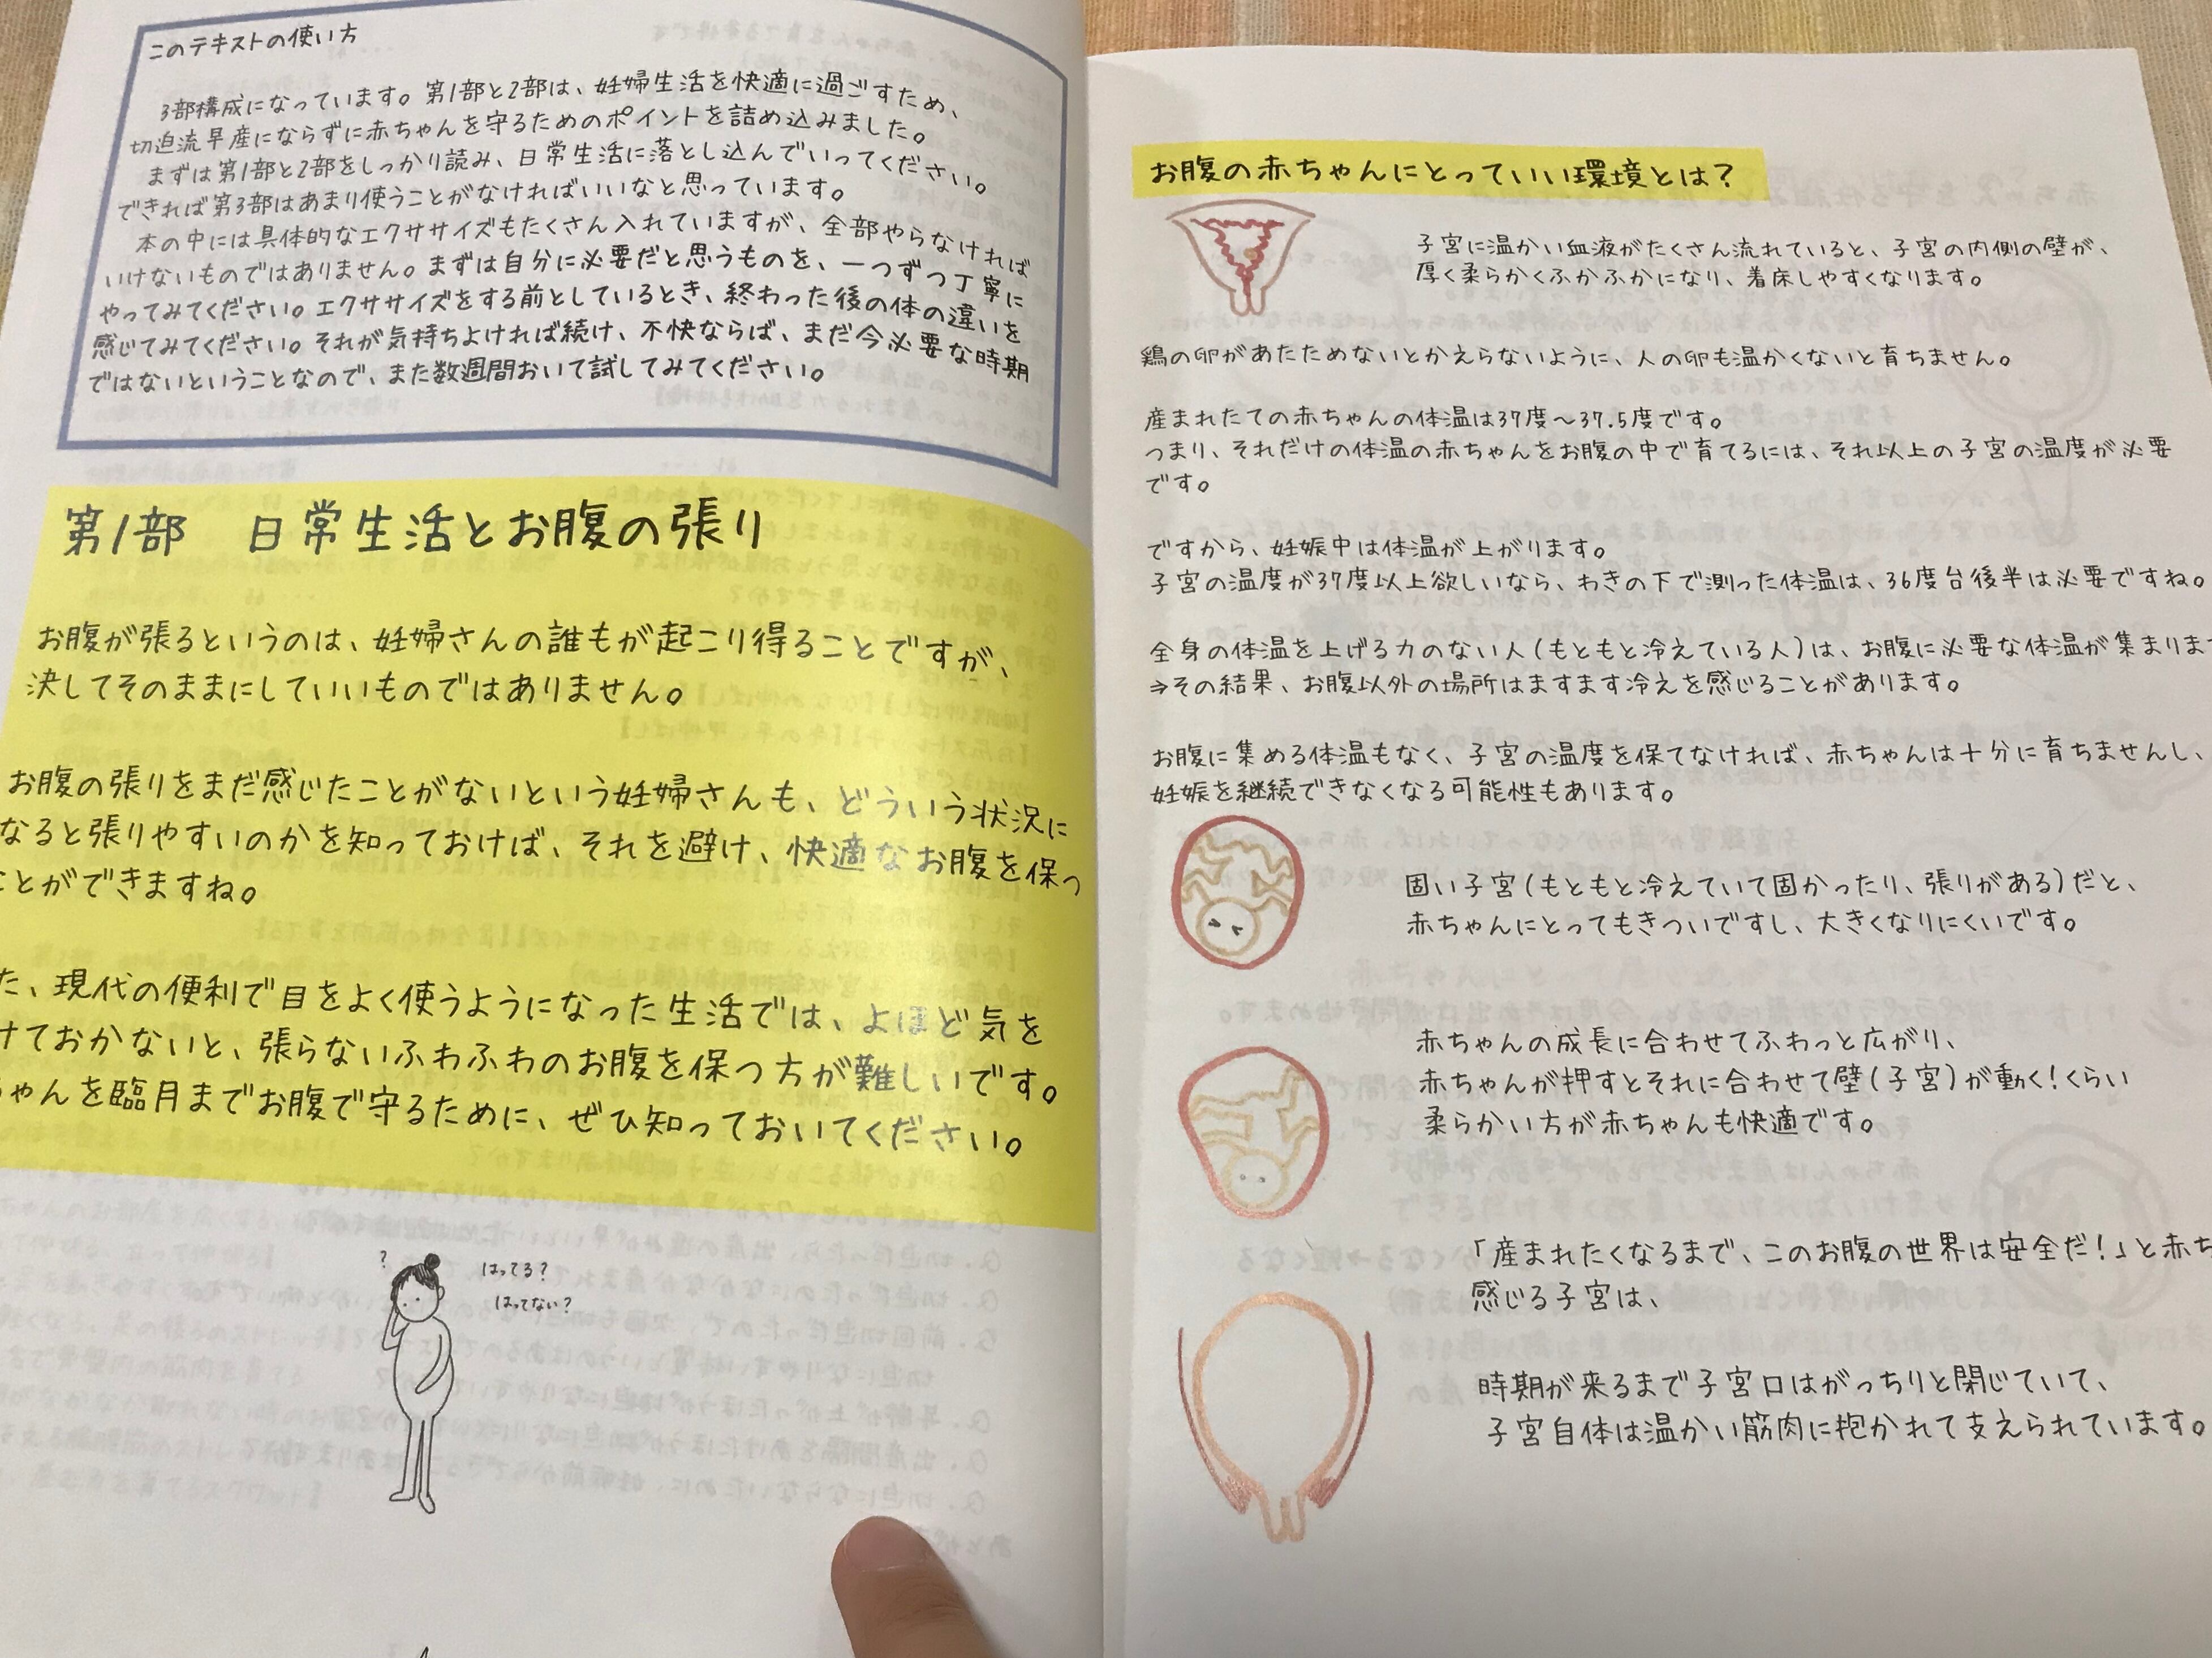 このテキストの使い方
3部構成になっています。第1部と2部は、妊婦生活を快適に過ごすため、
切迫流早産にならずに赤ちゃんを守るためのポイントを詰め込みました。
まずは第1部と2部をしっかり読み、日常生活に落とし込んでいってください。
できれば第3部はあまり使うことがなければいいなと思っています。
本の中には具体的なエクササイズもたくさん入れていますが、全部やらなければ
いけないものではありません。まずは自分に必要だと思うものを、一つずつ丁寧に
やってみてください。エクササイズをする前としているとき、終わった後の体の違いを
感じてみてください。それが気持ちよければ続け、不快ならば、まだ今必要な時期
ではないということなので、また数週間おいて試してみてください。
第1部 日常生活とお腹の張り
お腹が張るというのは、妊婦さんの誰もが起こり得ることですが、
決してそのままにしていいものではありません。
お腹の張りをまだ感じたことがないという妊婦さんも、どういう状況に
なると張りやすいのかを知っておけば、それを避け、快適なお腹を保つ
ことができますね。
た、現代の便利で目をよく使うようになった生活では、よほど気を
けておかないと、張らないふわふわのお腹を保つ方が難しいです。
ちゃんを臨月までお腹で守るために、ぜひ知っておいてください。
?
はってる?
はってない?
お腹の赤ちゃんにとっていい環境とは?
子宮に温かい血液がたくさん流れていると、子宮の内側の壁が、
厚く柔らかくふかふかになり、着床しやすくなります。
鶏の卵があたためないとかえらないように、人の卵も温かくないと育ちません。
産まれたての赤ちゃんの体温は37度〜37.5度です。
つまり、それだけの体温の赤ちゃんをお腹の中で育てるには、それ以上の子宮の温度が必要
です。
ですから、妊娠中は体温が上がります。
子宮の温度が37度以上欲しいなら、わきの下で測った体温は、36度台後半は必要ですね。
全身の体温を上げる力のない人(もともと冷えている人)は、お腹に必要な体温が集まります
⇒その結果、お腹以外の場所はますます冷えを感じることがあります。
お腹に集める体温もなく、子宮の温度を保てなければ、赤ちゃんは十分に育ちませんし、
妊娠を継続できなくなる可能性もあります。
固い子宮(もともと冷えていて固かったり、張りがある)だと、
赤ちゃんにとってもきついですし、大きくなりにくいです。
赤ちゃんの成長に合わせてふわっと広がり、
赤ちゃんが押すとそれに合わせて壁(子宮)が動く!くらい
柔らかい方が赤ちゃんも快適です。
「産まれたくなるまで、このお腹の世界は安全だ!」と赤ち
感じる子宮は、
時期が来るまで子宮口はがっちりと閉じていて、
子宮自体は温かい筋肉に抱かれて支えられています。